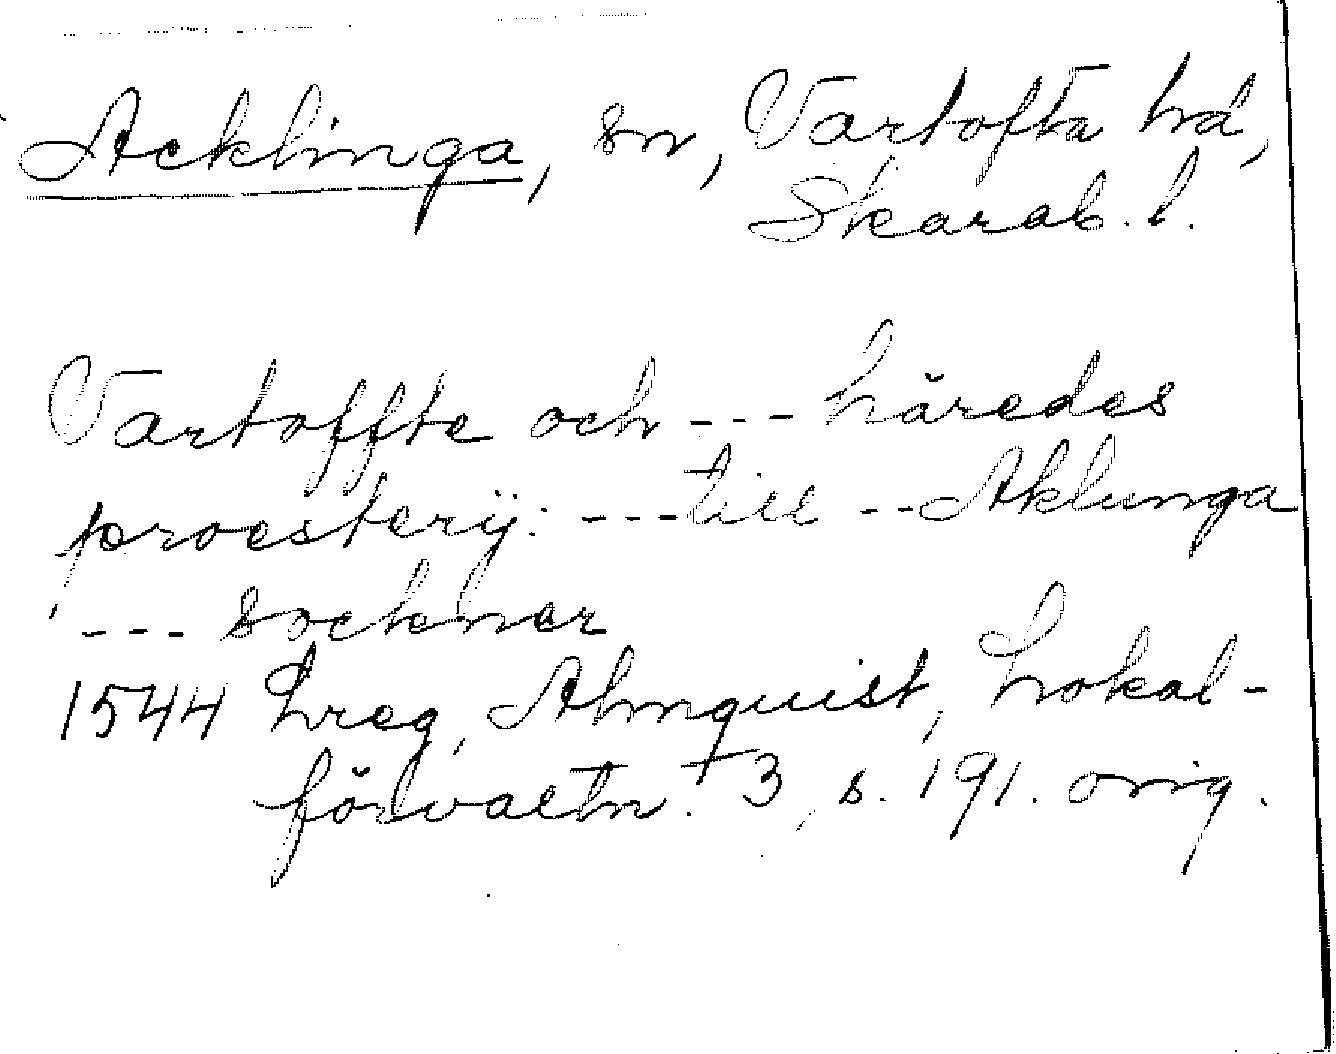 Acklinga, sn, Vartofta hd,
Skarab. l.
Vartoffte och --- häredes
proesterij: --- till -- Aklunga
--- socknar
1544 Lreg, Almquist, Lokal-
förvaltn. 3, s. 191. orig.